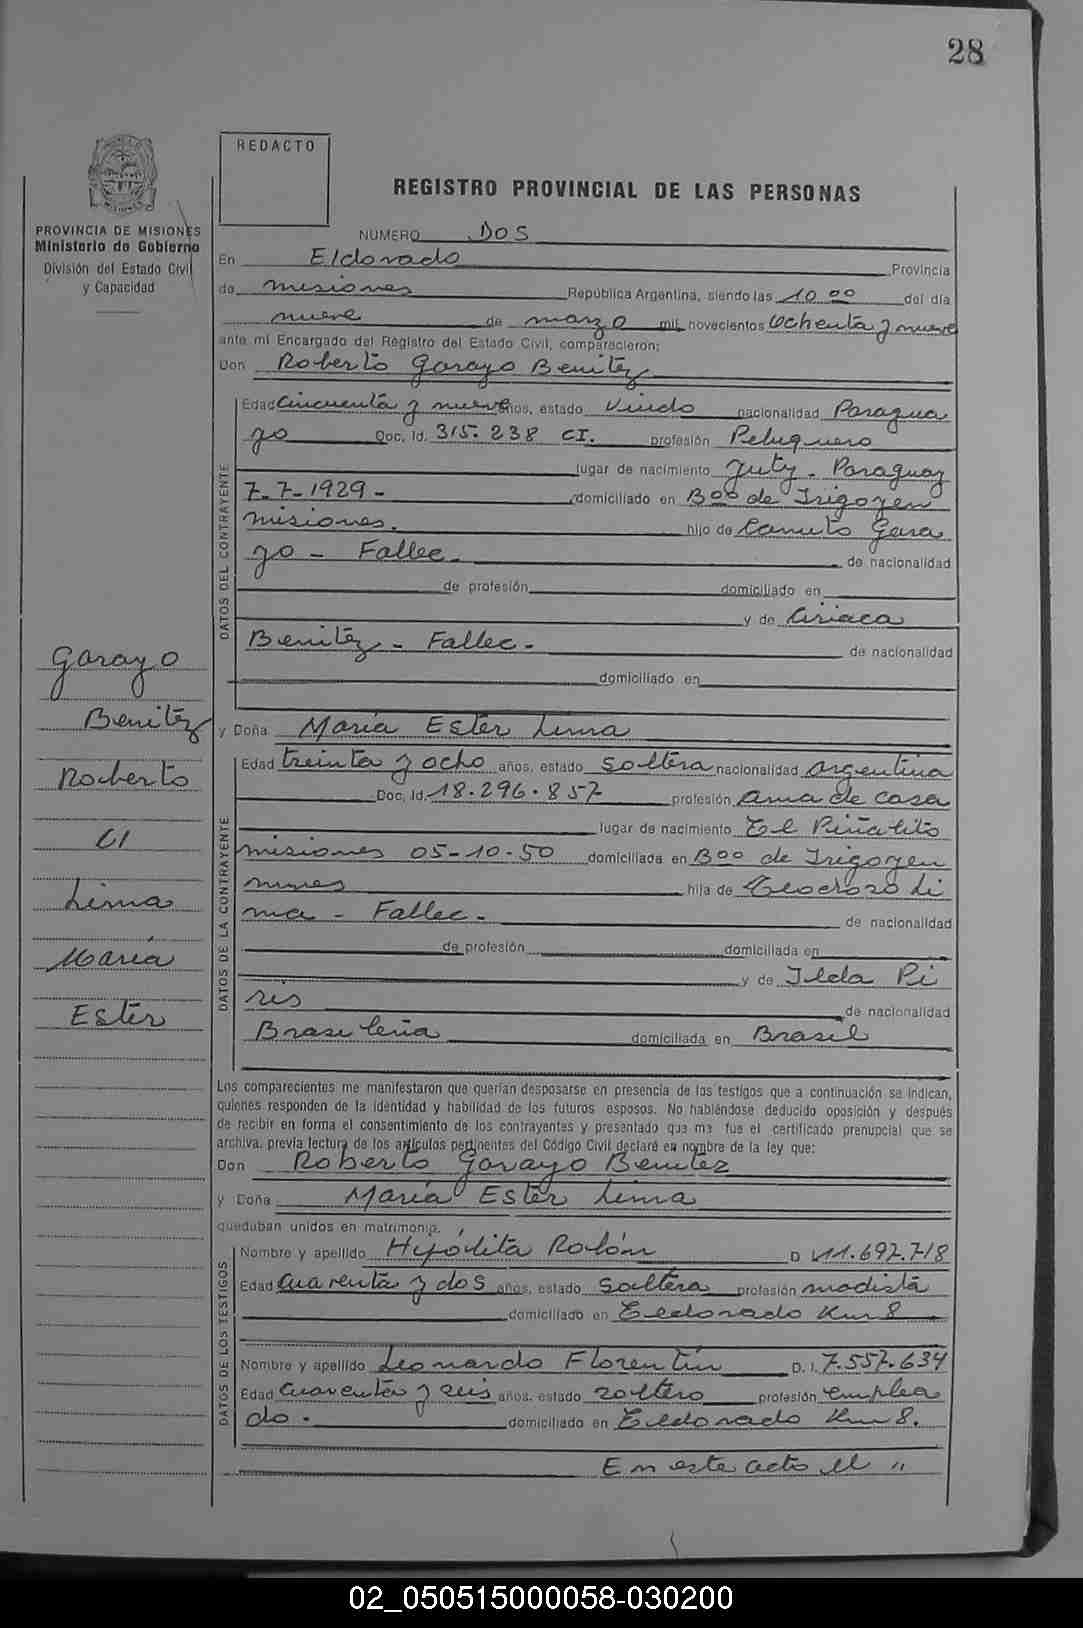 28
REDACTO
REGISTRO PROVINCIAL DE LAS PERSONAS
PROVINCIA DE MISIONES
Ministerio de Gobierno
División del Estado Civil
y Capacidad
NUMERO DOS
En Eldorado Provincia
de misiones República Argentina, siendo las 10 00 del día
nueve de marzo mil novecientos Ochenta y nueve
ante mí Encargado del Registro del Estado Civil, comparecieron:
Don Roberto Garayo Benitez
DATOS DEL CONTRAYENTE
Edad Cincuenta y nueve años, estado Viudo nacionalidad Paragua
yo Doc. Id. 315.238 CI. profesión Peluquero
lugar de nacimiento Yuty - Paraguay
7-7-1929- domiciliado en Bdo de Irigoyen
misiones. hijo de Canuto Gara
yo - Fallec. de nacionalidad
de profesión domiciliado en
y de
Benitez - Fallec- de nacionalidad
domiciliado en
y Doña María Ester Lima
DATOS DE LA CONTRAYENTE
Edad treinta y ocho años, estado soltera nacionalidad argentina
Doc. Id. 18.296.857 profesión ama de casa
lugar de nacimiento El Piñalito
misiones 05-10-50 domiciliada en Bdo de Irigoyen
hija de Teodozo Li
ma - Fallec- de nacionalidad
de profesión domiciliada en
y de Ilda Pi
res de nacionalidad
Brasileña domiciliada en Brasil
Garayo
Benitez
Roberto
C/
Lima
María
Ester
Los comparecientes me manifestaron que querían desposarse en presencia de los testigos que a continuación se indican,
quienes responden de la identidad y habilidad de los futuros esposos. No habiéndose deducido oposición y después
de recibir en forma el consentimiento de los contrayentes y presentado que me fue el certificado prenupcial que se
archiva, previa lectura de los artículos pertinentes del Código Civil declaré en nombre de la ley que:
Don Roberto Garayo Benitez
y Doña María Ester Lima
quedaban unidos en matrimonio.
DATOS DE LOS TESTIGOS
Nombre y apellido Hipólita Rolón D 11.692.718
Edad Cuarenta y dos años, estado soltera profesión modista
domiciliado en Eldorado Km 8
Nombre y apellido Leonardo Florentín D. I. 7.557.634
Edad Cuarenta y seis años, estado soltero profesión emplea
do. domiciliado en Eldorado Km 8.
En este acto el "
02_050515000058-030200